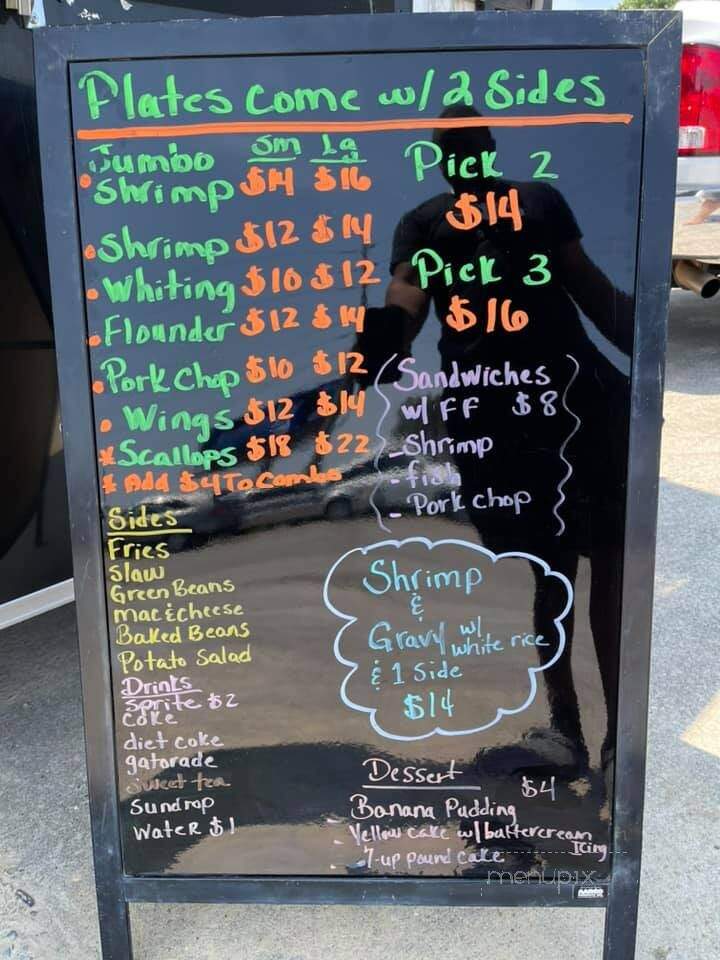 Plates Come w/ 2 Sides
Sm Lg
Jumbo
• Shrimp $14 $16
• Shrimp $12 $14
• Whiting $10 $12
• Flounder $12 $14
• Pork Chop $10 $12
• Wings $12 $14
* Scallops $18 $22
* Add $4 To Combo
Pick 2
$14
Pick 3
$16
Sandwiches
w/ FF $8
- Shrimp
- fish
- Pork chop
Sides
Fries
Slaw
Green Beans
mac & cheese
Baked Beans
Potato Salad
Drinks
Sprite $2
Coke
diet coke
gatorade
sweet tea
Sundrop
Water $1
Shrimp
&
Gravy w/
white rice
& 1 Side
$14
Dessert
$4
- Banana Pudding
- Yellow cake w/ buttercream
Icing
- 7-up pound cake
menupix